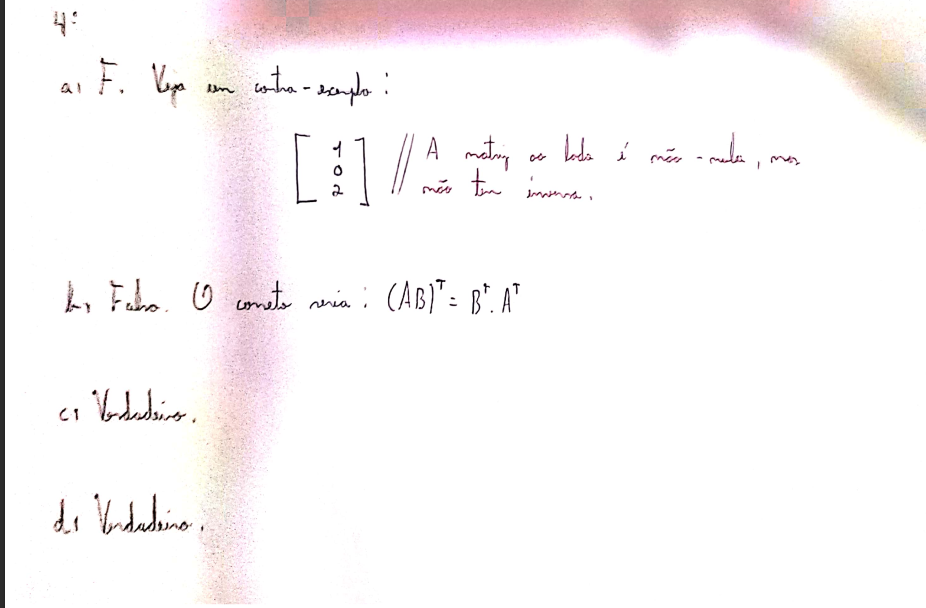 4:
a) F. Veja um contra-exemplo:
[ 1 0 2 ] // A matriz ao lado é não-nula, mas
não tem inversa.
b) Falso. O correto seria: (AB)ᵀ = Bᵀ. Aᵀ
c) Verdadeiro.
d) Verdadeiro.